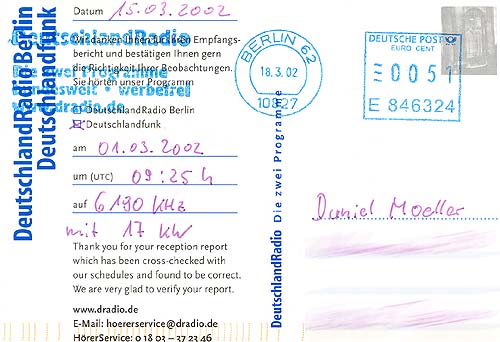 DeutschlandRadio Berlin
Deutschlandfunk
Datum 15.03.2002
DeutschlandRadio
Die zwei Programme
bundesweit • werbefrei
www.dradio.de
Wir danken Ihnen für Ihren Empfangs-
bericht und bestätigen Ihnen gern
die Richtigkeit Ihrer Beobachtungen.
Sie hörten unser Programm
DeutschlandRadio Berlin
Deutschlandfunk
am 01.03.2002
um (UTC) 09:25 h
auf 6190 KHz
mit 17 KW
Thank you for your reception report
which has been cross-checked with
our schedules and found to be correct.
We are very glad to verify your report.
www.dradio.de
E-Mail: hoererservice@dradio.de
HörerService: 0 18 03 – 37 23 46
DeutschlandRadio Die zwei Programme
BERLIN 62
18.3.02
10827
DEUTSCHE POST
EURO CENT
0051
E 846324
Daniel Moeller